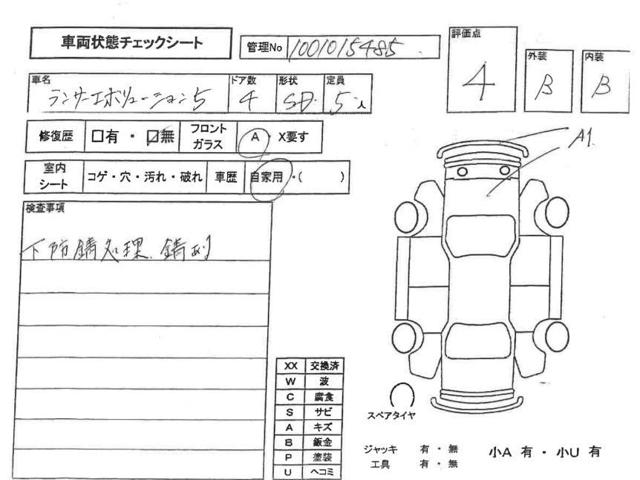 車両状態チェックシート
管理No 1001015485
評価点
4
外装
B
内装
B
車名
ランサーエボリューション5
ドア数
4
形状
SD
定員
5人
修復歴 □有 ・ ☑無
フロントガラス A ・ X要す
室内シート コゲ・穴・汚れ・破れ
車歴 自家用 ・( )
A1
検査事項
下防錆処理、錆あり
XX 交換済
W 波
C 腐食
S サビ
A キズ
B 鈑金
P 塗装
U ヘコミ
スペアタイヤ
ジャッキ 有 ・ 無
工具 有 ・ 無
小A 有 ・ 小U 有